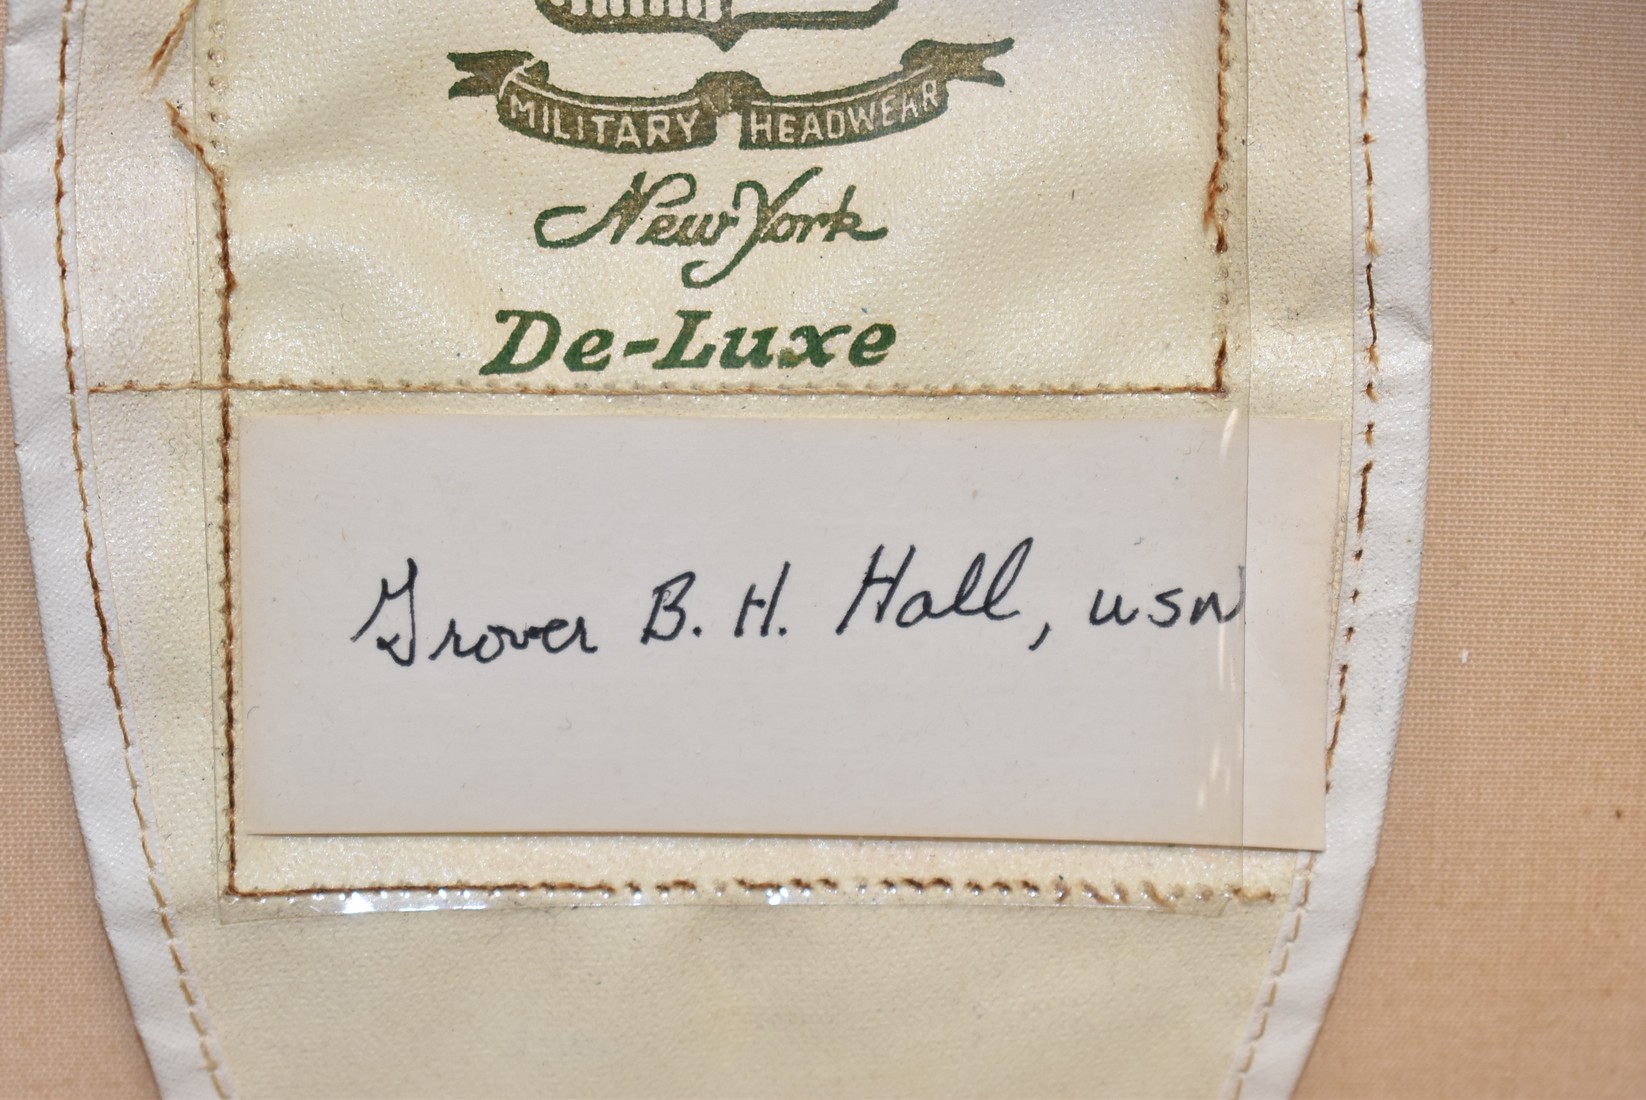 MILITARY HEADWEAR
New York
De-Luxe
Grover B. H. Hall, USN